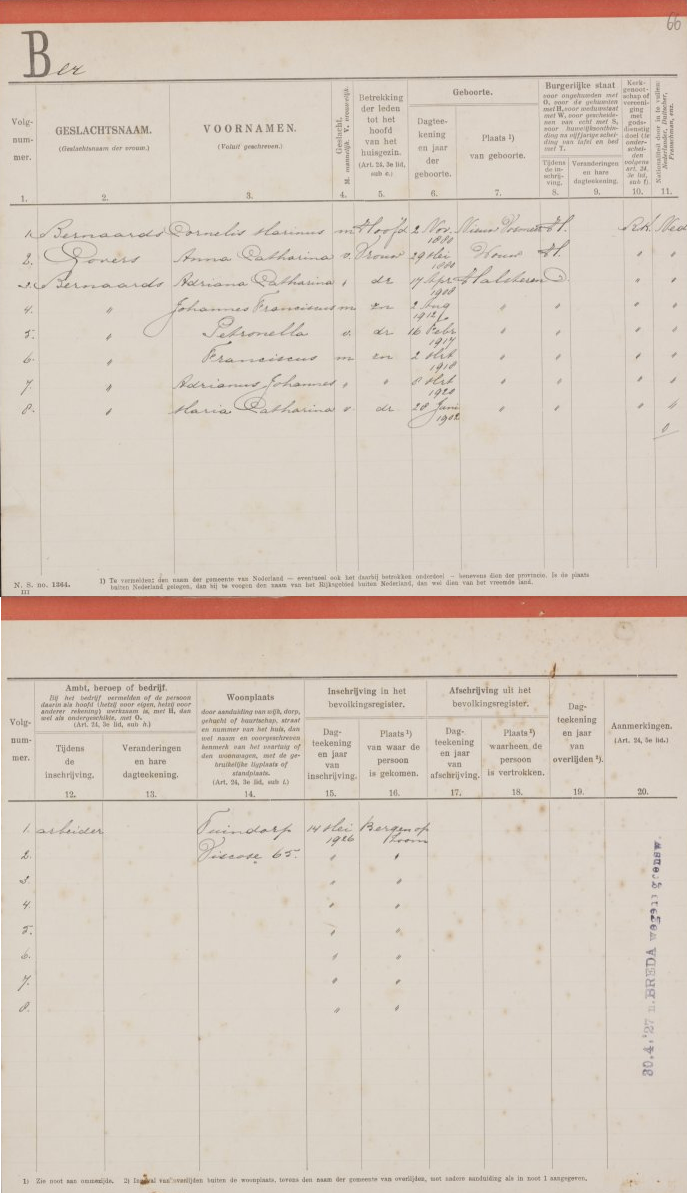 66
Ber
Volg-
num-
mer.
GESLACHTSNAAM.
(Geslachtsnaam der vrouw.)
VOORNAMEN.
(Voluit geschreven.)
Geslacht.
M. mannelijk. V. vrouwelijk.
Betrekking
der leden
tot het
hoofd
van het
huisgezin.
(Art. 24, 3e lid,
sub e.)
Geboorte.
Dagtee-
kening
en jaar
der
geboorte.
Plaats 1)
van geboorte.
Burgerlijke staat
voor ongehuwden met
O, voor de gehuwden
met H, voor weduwstaat
met W, voor gescheide-
nen van echt met S,
voor huwelijksontbin-
ding na vijfjarige schei-
ding van tafel en bed
met T.
Tijdens
de in-
schrij-
ving.
Veranderingen
en hare
dagteekening.
Kerk-
genoot-
schap of
vereeni-
ging
met
gods-
dienstig
doel (te
onder-
schei-
den
volgens
art. 24,
3e lid,
sub f.)
Nationaliteit door in te vullen:
Nederlander, Duitscher,
Franschman, enz.
1. 2. 3. 4. 5. 6. 7. 8. 9. 10. 11.
1. Bernaards Cornelis Marinus m Hoofd 2 Nov. 1880 Nieuw Vosmeer H. R.K. Ned
2. Govers Anna Catharina v. Vrouw 29 Mei 1880 H. " "
3. Bernaards Adriana Catharina " dr 17 Apr 1908 Halsteren O. " "
4. " Johannes Franciscus m zn 2 Aug 1912 " " " "
5. " Petronella v. dr 16 Febr 1917 " " " "
6. " Franciscus m zn 2 Mrt 1918 " " " "
7. " Adrianus Johannes " " 8 Mrt 1920 " " " "
8. " Maria Catharina v. dr 28 Juni 1902 " " " "
N. S. no. 1264.
III
1) Te vermelden: den naam der gemeente van Nederland — eventueel ook het daarbij betrokken onderdeel — benevens dien der provincie. Is de plaats
buiten Nederland gelegen, dan bij te voegen den naam van het Rijksgebied buiten Nederland, dan wel dien van het vreemde land.
Volg-
num-
mer.
Ambt, beroep of bedrijf.
Bij het bedrijf vermelden of de persoon
daarin als hoofd (hetzij voor eigen, hetzij voor
anderer rekening) werkzaam is, met H, dan
wel als ondergeschikte, met O.
(Art. 24, 3e lid, sub h.)
Tijdens
de
inschrijving.
Veranderingen
en hare
dagteekening.
Woonplaats
door aanduiding van wijk, dorp,
gehucht of buurtschap, straat
en nummer van het huis, dan
met naam en voorgeschreven
kenmerk van het vaartuig of
den woonwagen, met de ge-
bruikelijke ligplaats of
standplaats.
(Art. 24, 3e lid, sub i.)
Inschrijving in het
bevolkingsregister.
Dag-
teekening
en jaar
van
inschrijving.
Plaats 1)
van waar de
persoon
is gekomen.
Afschrijving uit het
bevolkingsregister.
Dag-
teekening
en jaar
van
afschrijving.
Plaats 2)
waarheen de
persoon
is vertrokken.
Dag-
teekening
en jaar
van
overlijden 2).
Aanmerkingen.
(Art. 24, 3e lid.)
12. 13. 14. 15. 16. 17. 18. 19. 20.
1. arbeider Tuindorp 14 Mei 1926 Bergen op Zoom
2. Viscose 65. " "
3. " "
4. " "
5. " "
6. " "
7. " "
8. " "
30.4.'27 n. BREDA wegens grensw.
1) Zie noot aan ommezijde. 2) Ingeval van overlijden buiten de woonplaats, tevens den naam der gemeente van overlijden, met nadere aanduiding als in noot 1 aangegeven.